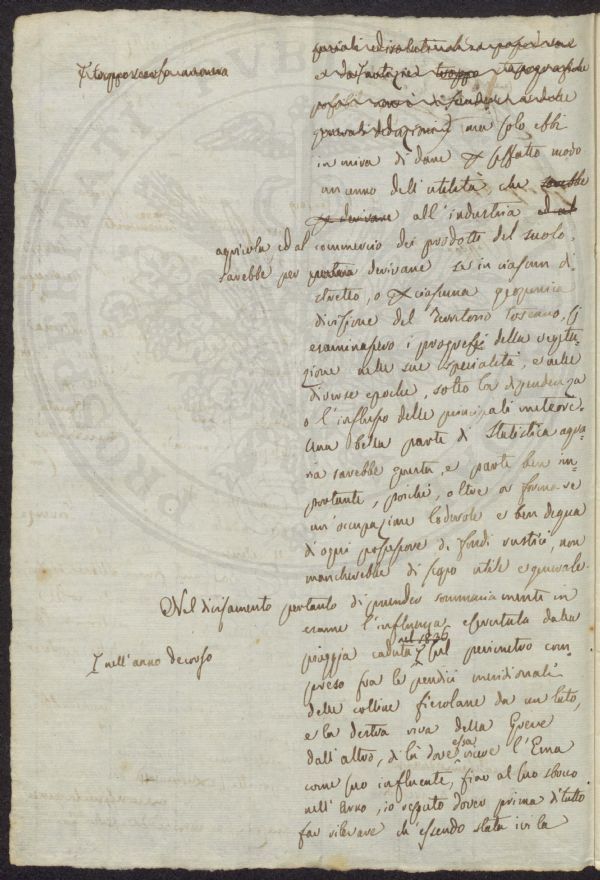 generali ed
e da
ma solo ebbi
in mira di dare siffatto modo
un cenno dell'utilità che sarebbe
derivare all'industria ed al
agricola, ed al commercio dei prodotti del suolo,
sarebbe per derivare se in ciascun di
stretto, o ciascuna
divisione del Territorio toscano, si
esaminassero i progressi della vegeta
zione nelle sue specialità, e nelle
diverse epoche, sotto la dipendenza
o l'influsso delle principali meteore.
Una bella parte di Statistica agra
ria sarebbe questa, e parte ben im
portante, poichè, oltre a formare
un'occupazione lodevole e ben degna
di ogni possessore di fondi rustici, non
mancherebbe di scopo utile e generale.
Nel divisamento pertanto di prender sommariamente in
esame l'influenza esercitata dalla
nel 1836
pioggia caduta nel perimetro com
nell'anno decorso
preso fra le pendici meridionali
delle colline fiesolane da un lato,
e la destra riva della Greve
dall'altro, di là dove essa riceve l'Ema
come suo influente, fino al suo sbocco
nell'Arno, io reputo dover prima di tutto
far rilevare ch'essendo stata ivi la